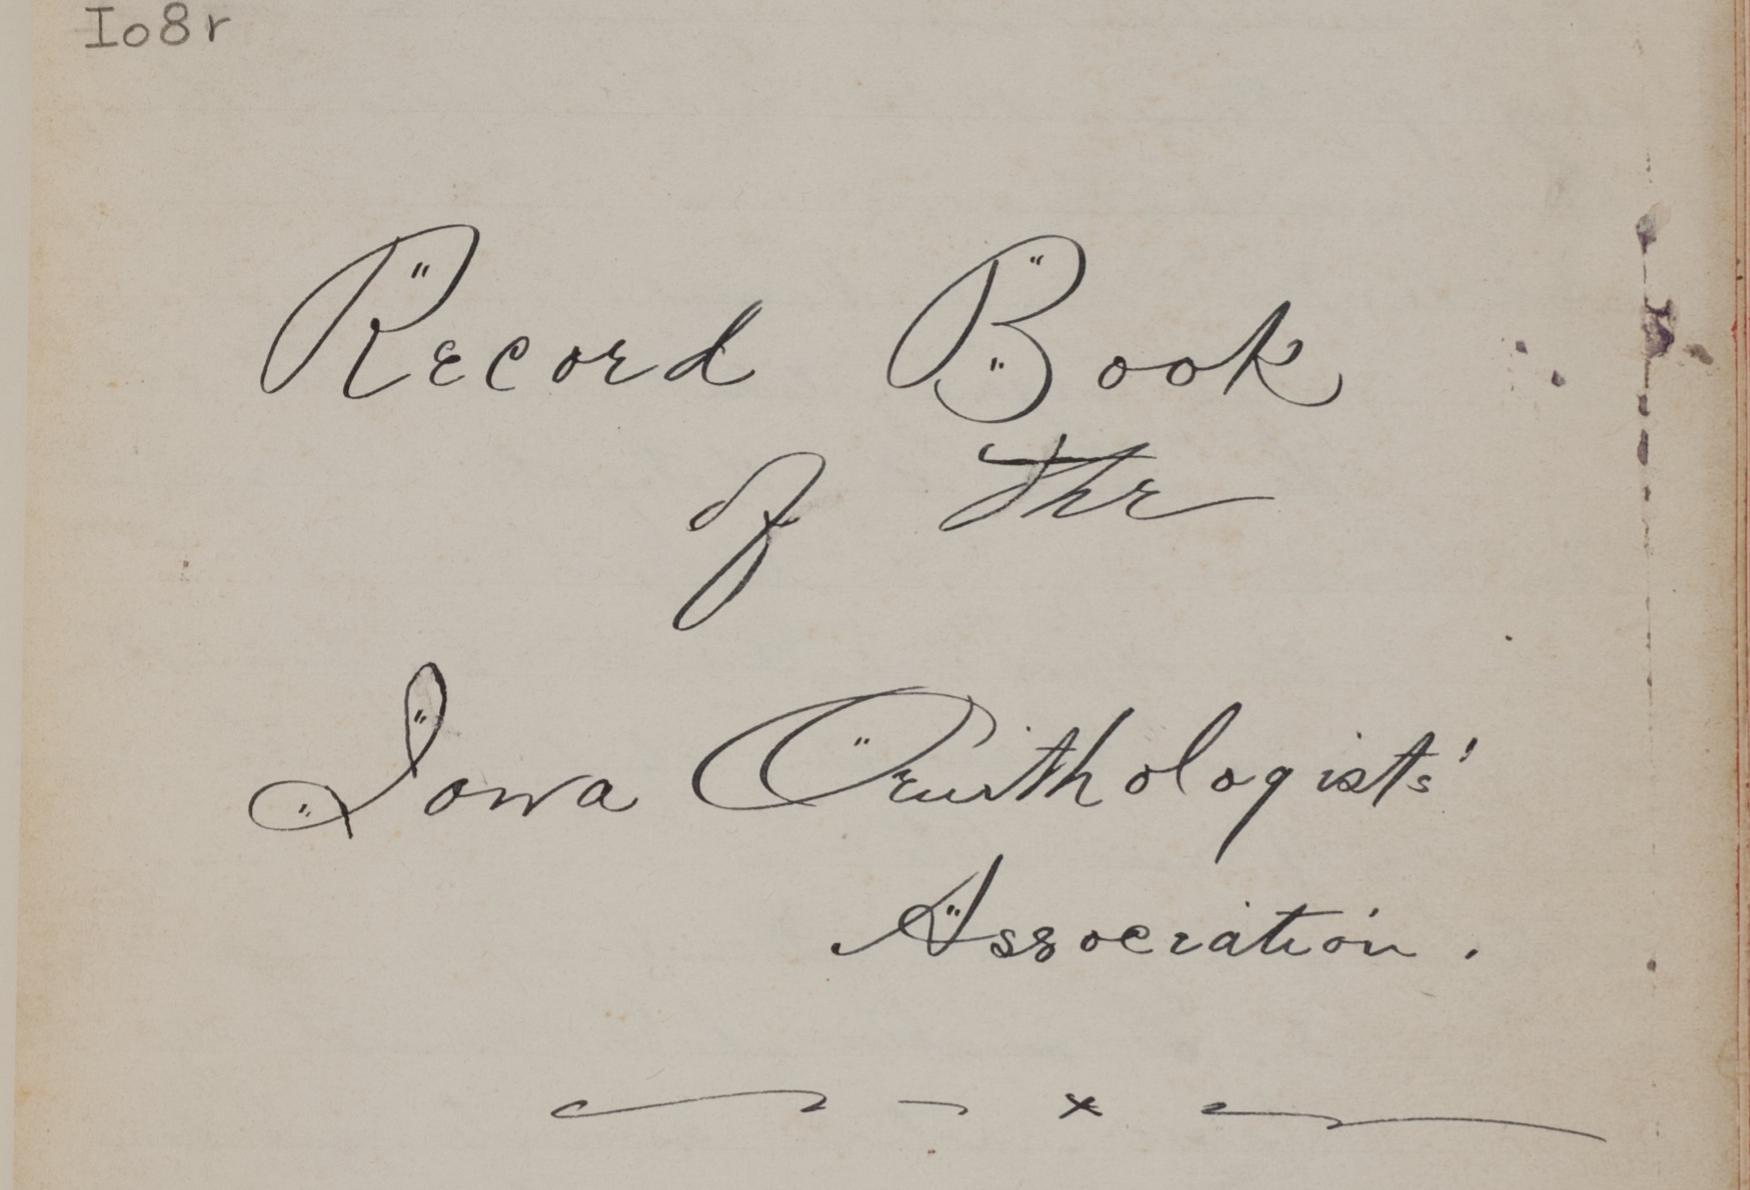 Io8r
Record Book
of the
Iowa Ornithologists'
Association.